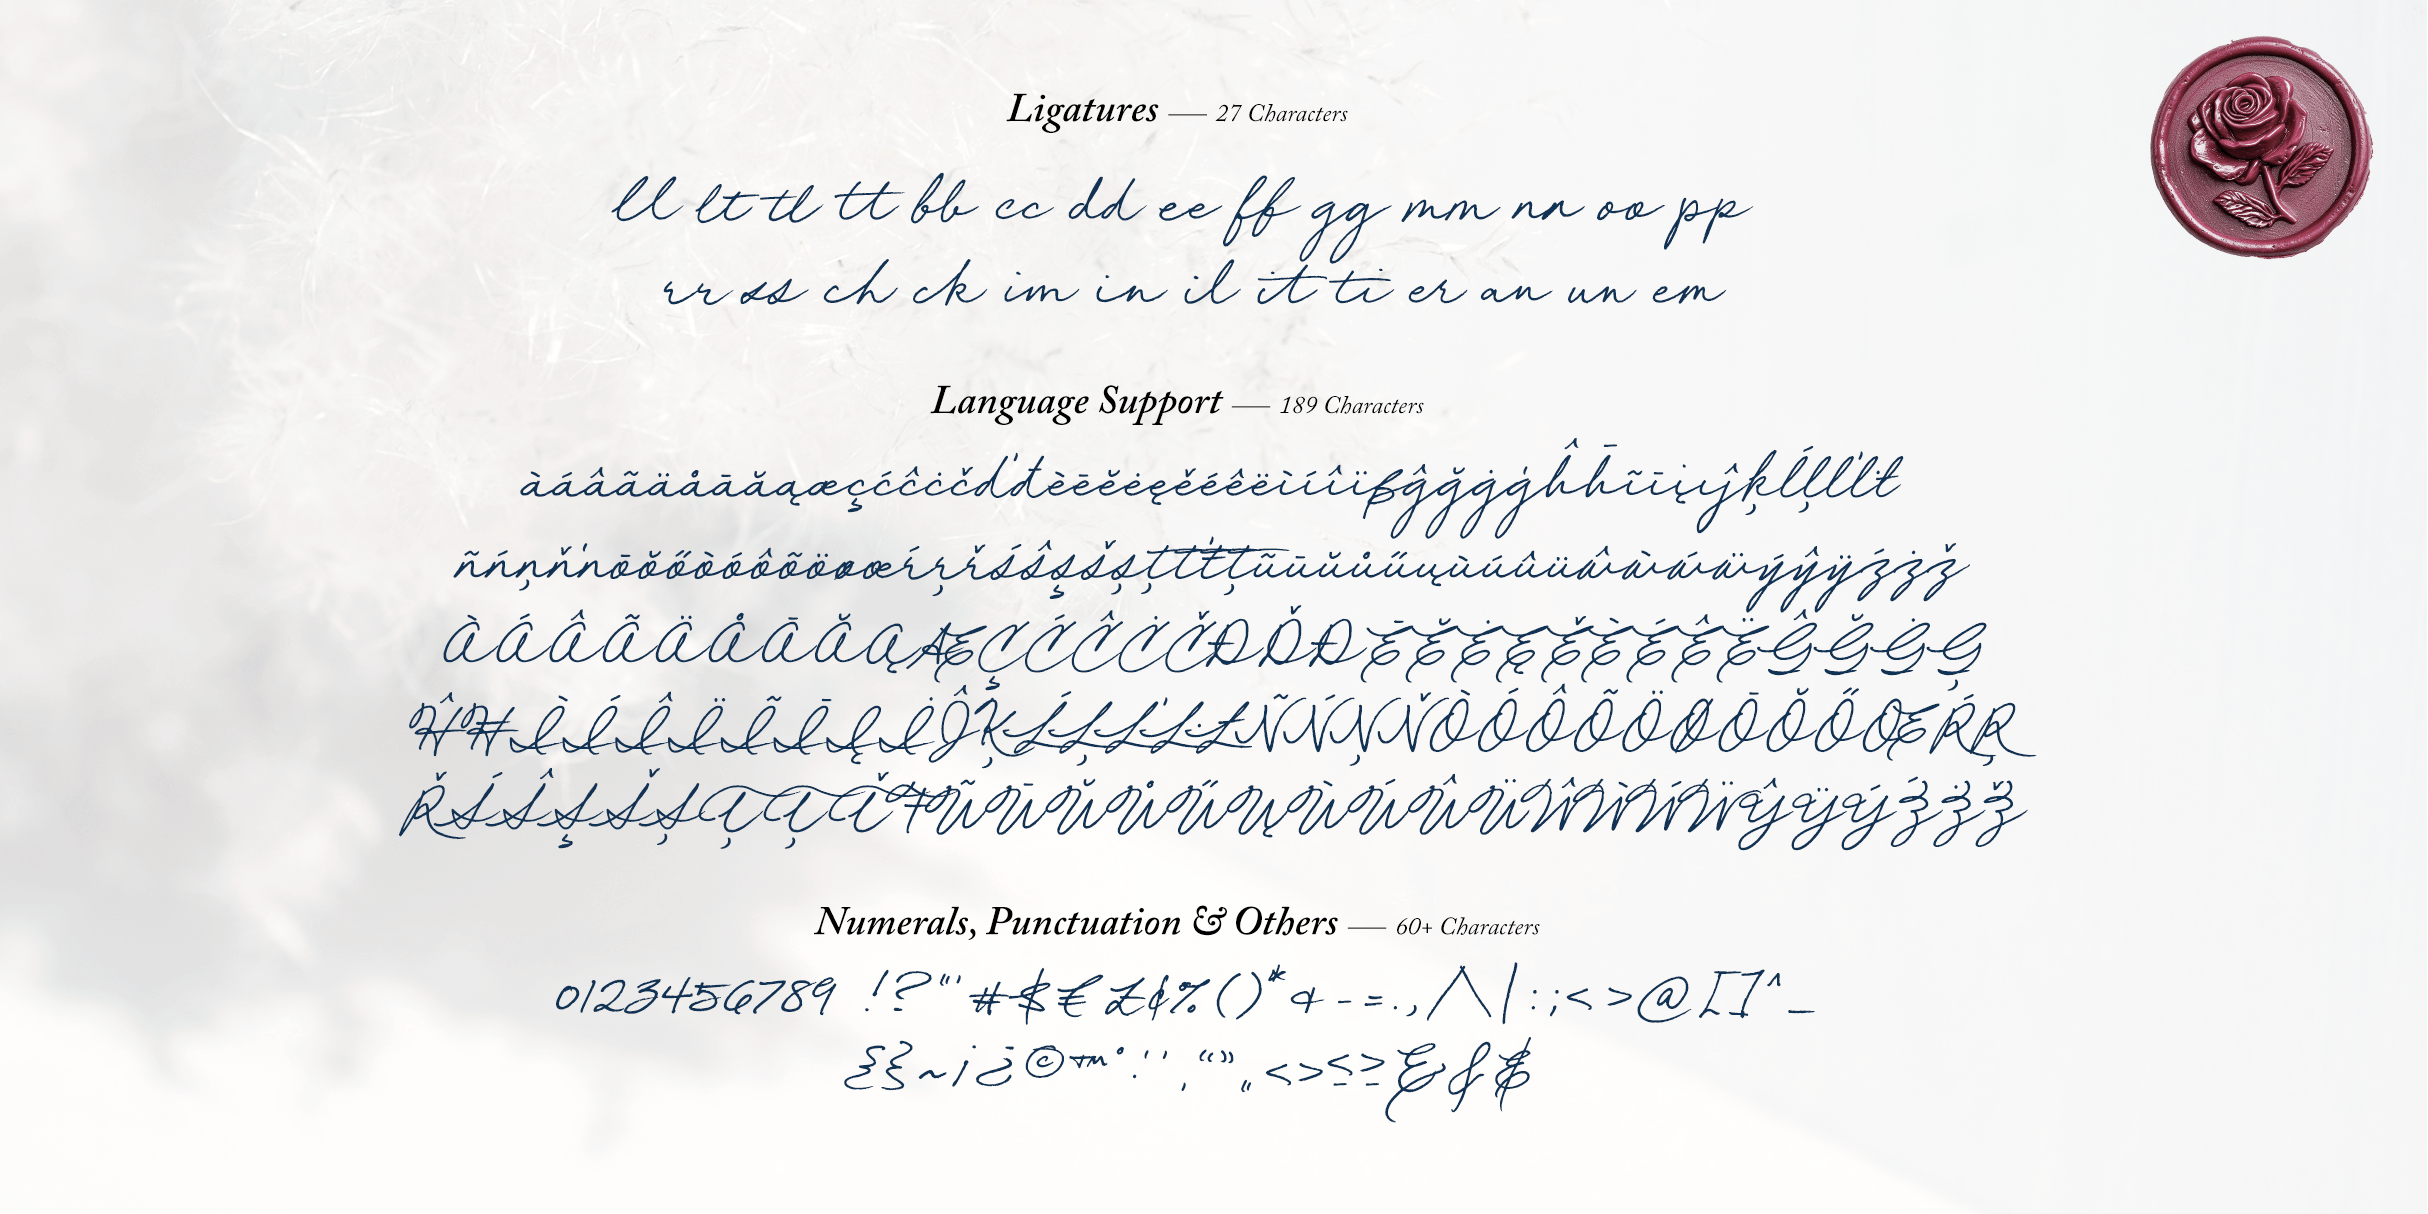 Ligatures — 27 Characters
ll lt tl tt bb cc dd ee ff gg mm nn oo pp
rr ss ch ck im in il it ti er an un em
Language Support — 189 Characters
àáâãäåāăąæçćĉċčďđèēĕėęěéêëìíîïßĝğġģĥħĩīįŷķĺļľŀł
ñńņňŉōŏőòóôõöøœŕŗřśŝşšșţťŧțũūŭůűųùúûüŵẁẃẅýŷÿźżž
ÀÁÂÃÄÅĀĂĄÆÇĆĈĊČÐĎĐĒĔĖĘĚÈÉÊËĜĞĠĢ
ĤĦÌÍÎÏĨĪĮİĴĶĹĻĽĿŁÑŃŅŇÒÓÔÕÖØŌŎŐŒŔŖ
ŘŚŜŞŠȘŢȚŤŦŨŪŬŮŰŲÙÚÛÜŴẀẂẄŶŸÝŹŻŽ
Numerals, Punctuation & Others — 60+ Characters
0123456789 !?"' #$€ £¢%()*+-=.,/\|:;<>@[]^_
{}~¡¿©™°·‘’‚“”„<>≤≥&